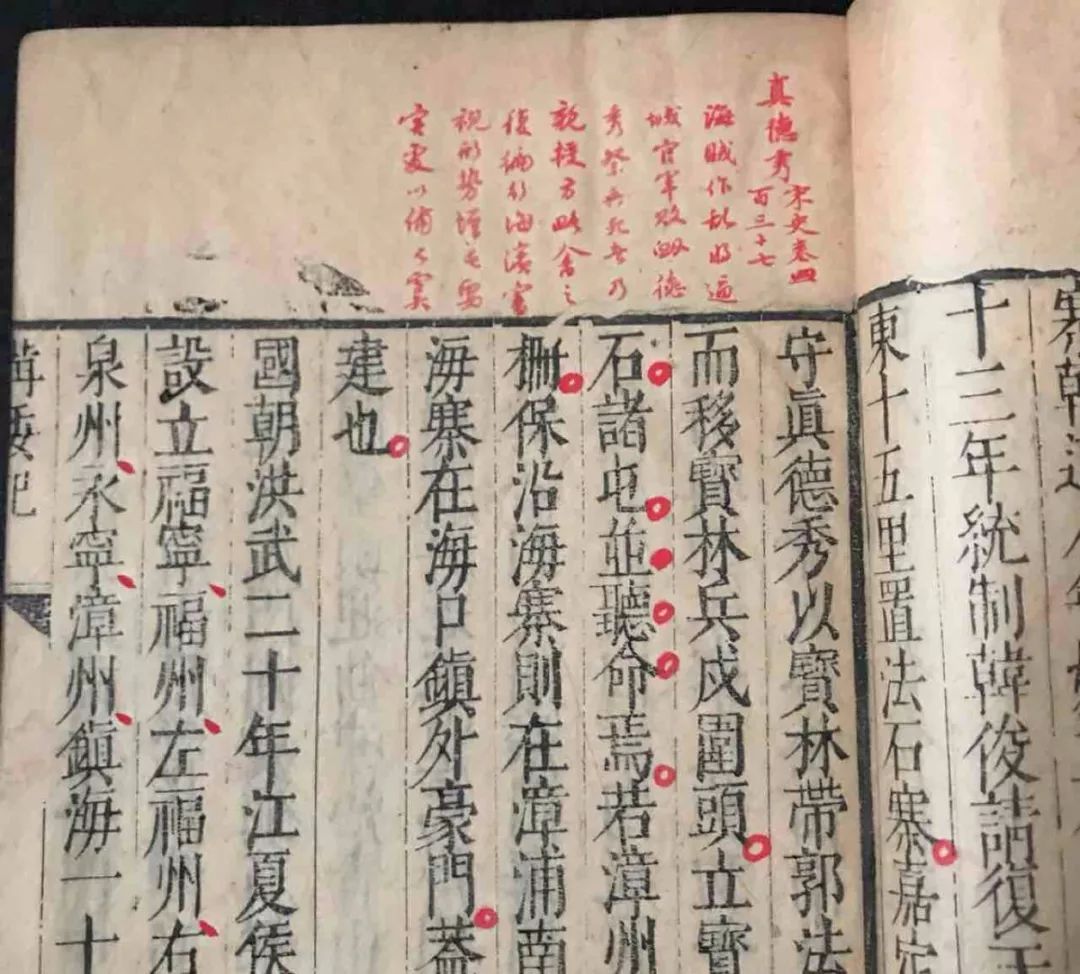 十三年統制韓俊請復
東十五里置法石寨嘉定
真德秀
宋史卷四
百三十七
海賊作亂將逼
城官軍敗衄德
秀祭兵死者乃
親授方略禽之
復徧行海濱審
視形勢增屯要
害處以備不虞
守眞德秀以寶林帶郭法
而移寶林兵戍圍頭立寶
石諸屯並聽命焉若漳州
柵保沿海寨則在漳浦南
海寨在海口鎮外豪門蓋
建也
國朝洪武二十年江夏侯
設立福寧福州左福州右
泉州永寧漳州鎮海一十